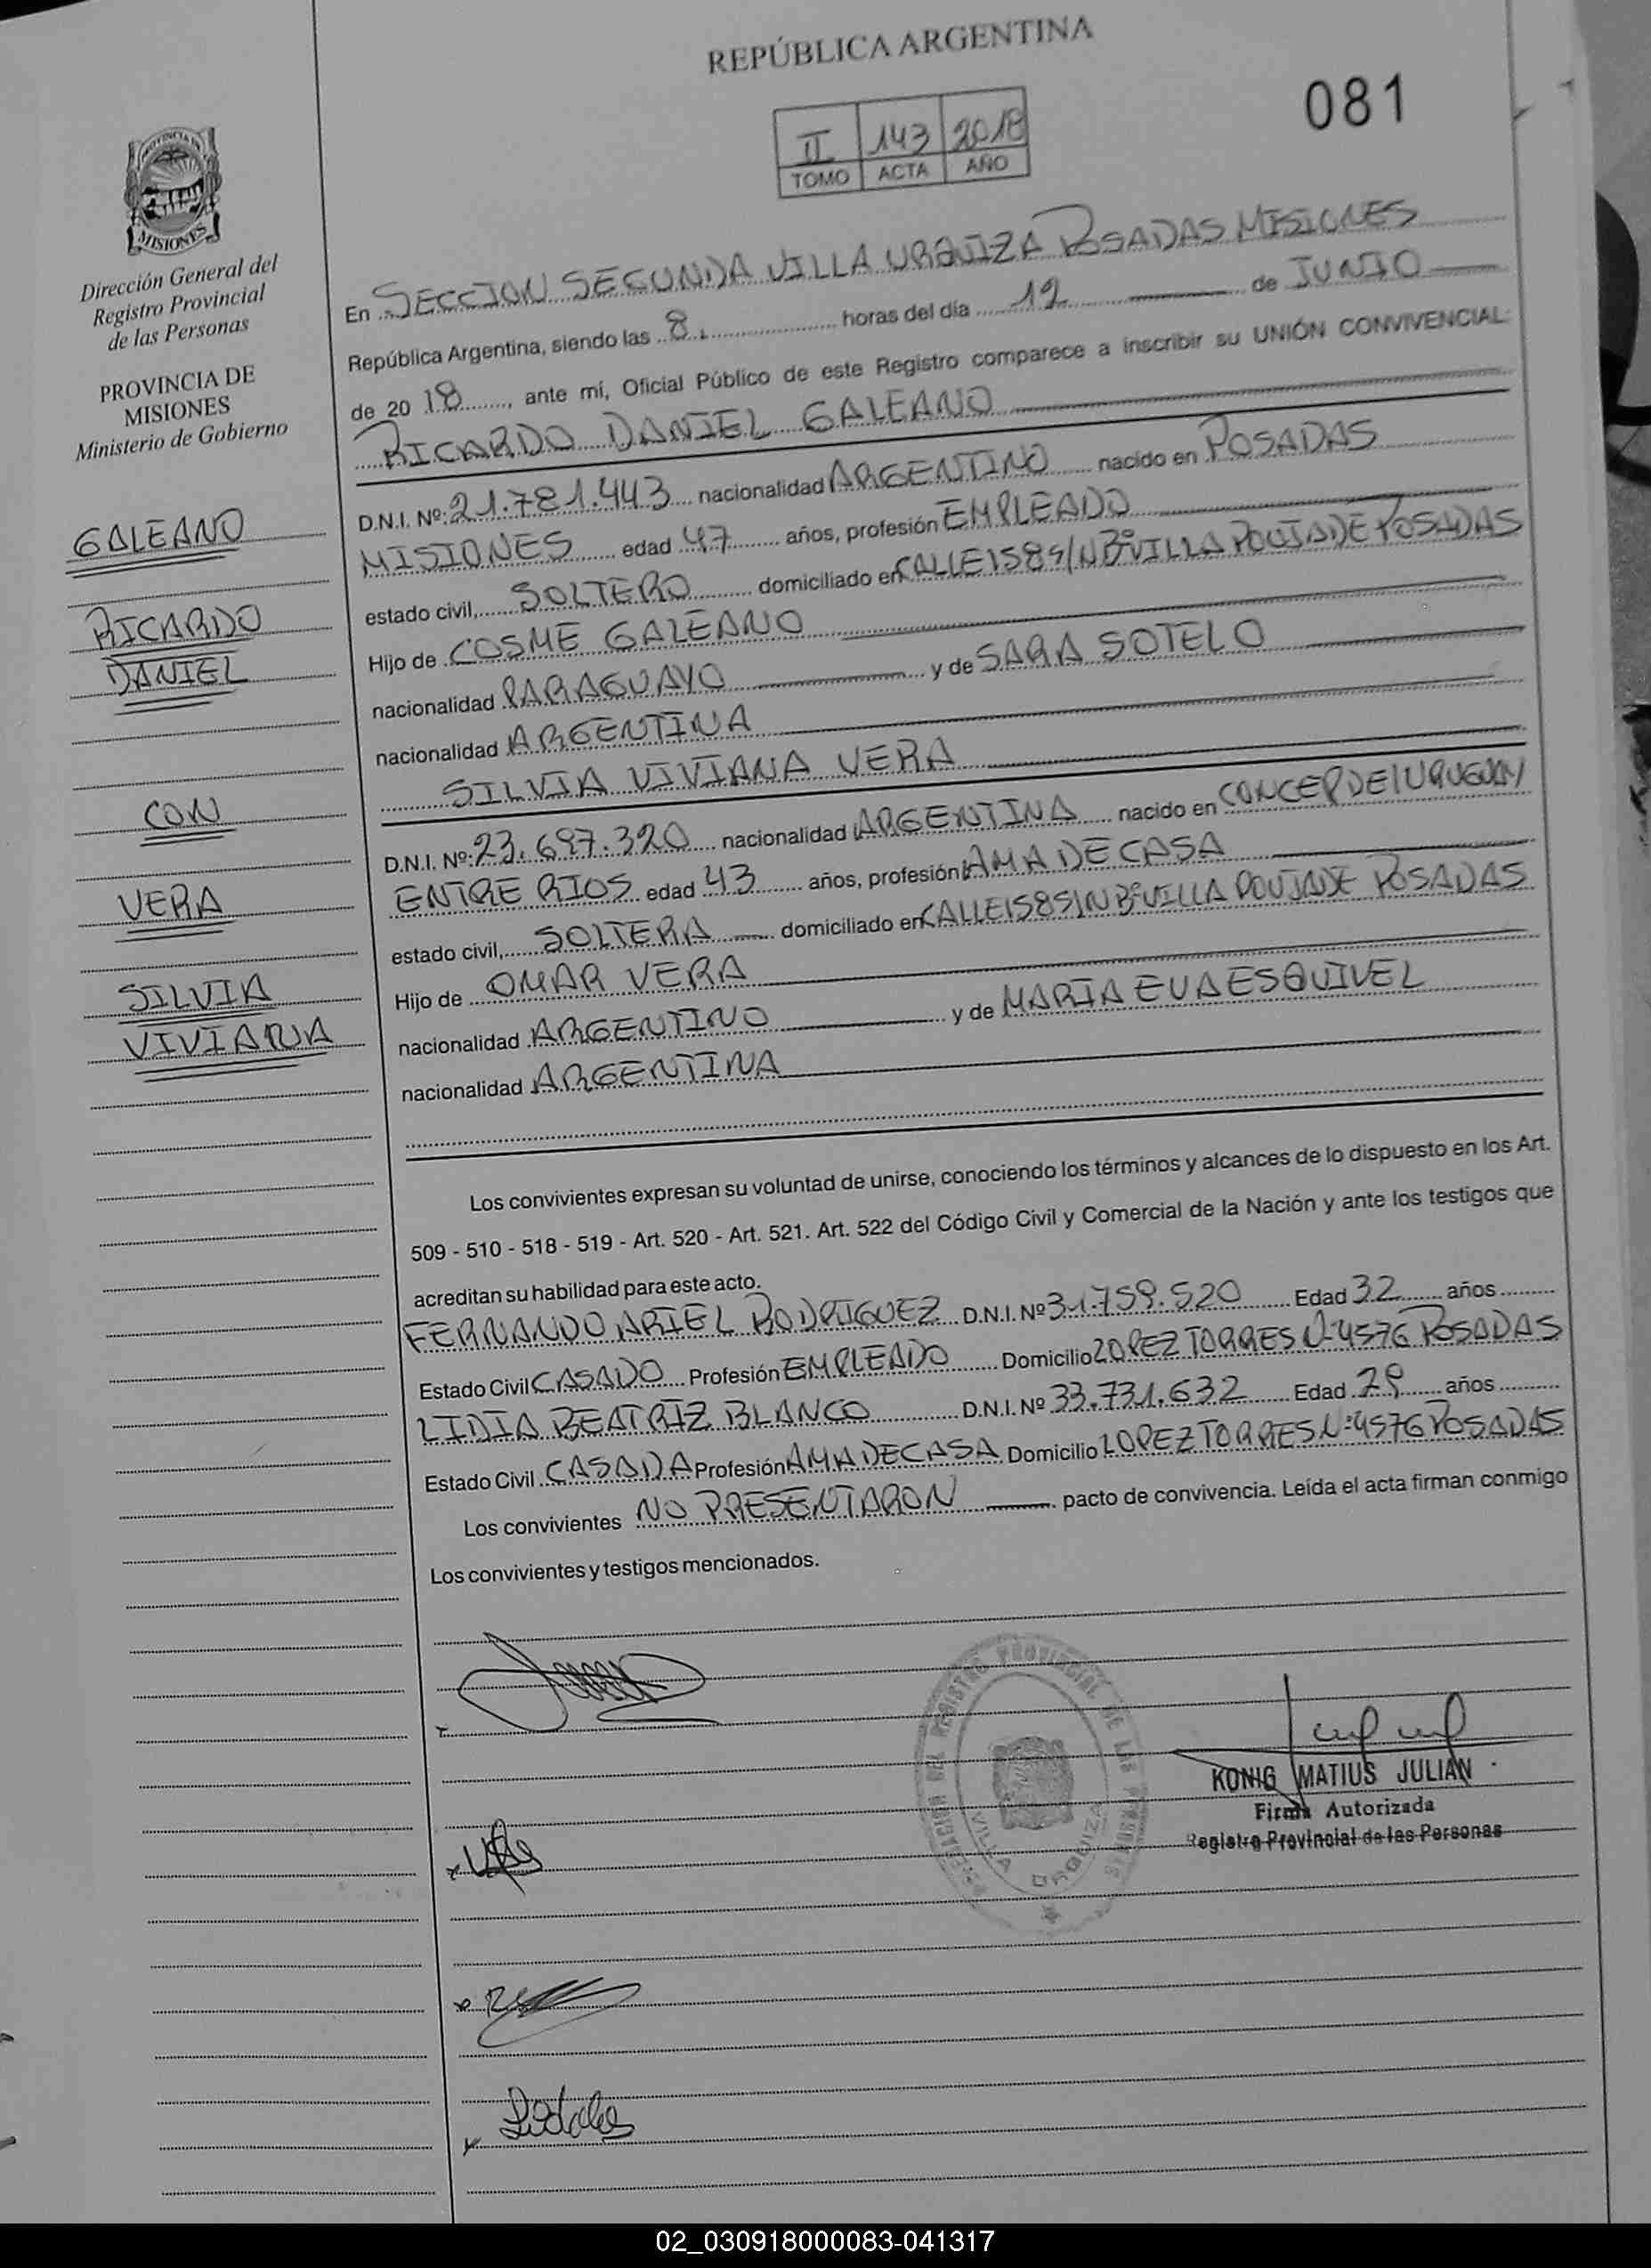 REPÚBLICA ARGENTINA
081
II 143 2018
TOMO ACTA AÑO
MISIONES
Dirección General del
Registro Provincial
de las Personas
PROVINCIA DE
MISIONES
Ministerio de Gobierno
GALEANO
RICARDO
DANIEL
CON
VERA
SILVIA
VIVIANA
En SECCION SEGUNDA VILLA URQUIZA POSADAS MISIONES
República Argentina, siendo las 8 horas del día 12 de JUNIO
de 2018, ante mí, Oficial Público de este Registro comparece a inscribir su UNIÓN CONVIVENCIAL:
RICARDO DANIEL GALEANO
D.N.I. Nº: 21.781.443 nacionalidad ARGENTINO nacido en POSADAS
MISIONES edad 47 años, profesión EMPLEADO
estado civil, SOLTERO domiciliado en CALLE 158 S/N Bº VILLA POUJADE POSADAS
Hijo de COSME GALEANO
nacionalidad PARAGUAYO y de SARA SOTELO
nacionalidad ARGENTINA
SILVIA VIVIANA VERA
D.N.I. Nº: 23.697.320 nacionalidad ARGENTINA nacido en CONCEP DEL URUGUAY
ENTRE RIOS edad 43 años, profesión AMA DE CASA
estado civil, SOLTERA domiciliado en CALLE 158 S/N Bº VILLA POUJADE POSADAS
Hijo de OMAR VERA
nacionalidad ARGENTINO y de MARIA EVA ESQUIVEL
nacionalidad ARGENTINA
Los convivientes expresan su voluntad de unirse, conociendo los términos y alcances de lo dispuesto en los Art.
509 - 510 - 518 - 519 - Art. 520 - Art. 521. Art. 522 del Código Civil y Comercial de la Nación y ante los testigos que
acreditan su habilidad para este acto.
FERNANDO ARIEL RODRIGUEZ D.N.I. Nº 31.759.520 Edad 32 años
Estado Civil CASADO Profesión EMPLEADO Domicilio LOPEZ TORRES Nº 4576 POSADAS
LIDIA BEATRIZ BLANCO D.N.I. Nº 33.731.632 Edad 29 años
Estado Civil CASADA Profesión AMA DE CASA Domicilio LOPEZ TORRES Nº 4576 POSADAS
Los convivientes NO PRESENTARON pacto de convivencia. Leída el acta firman conmigo
Los convivientes y testigos mencionados.
REGISTRO PROVINCIAL DE LAS PERSONAS
VILLA URQUIZA
KONIG MATIUS JULIAN
Firma Autorizada
Registro Provincial de las Personas
02_030918000083-041317